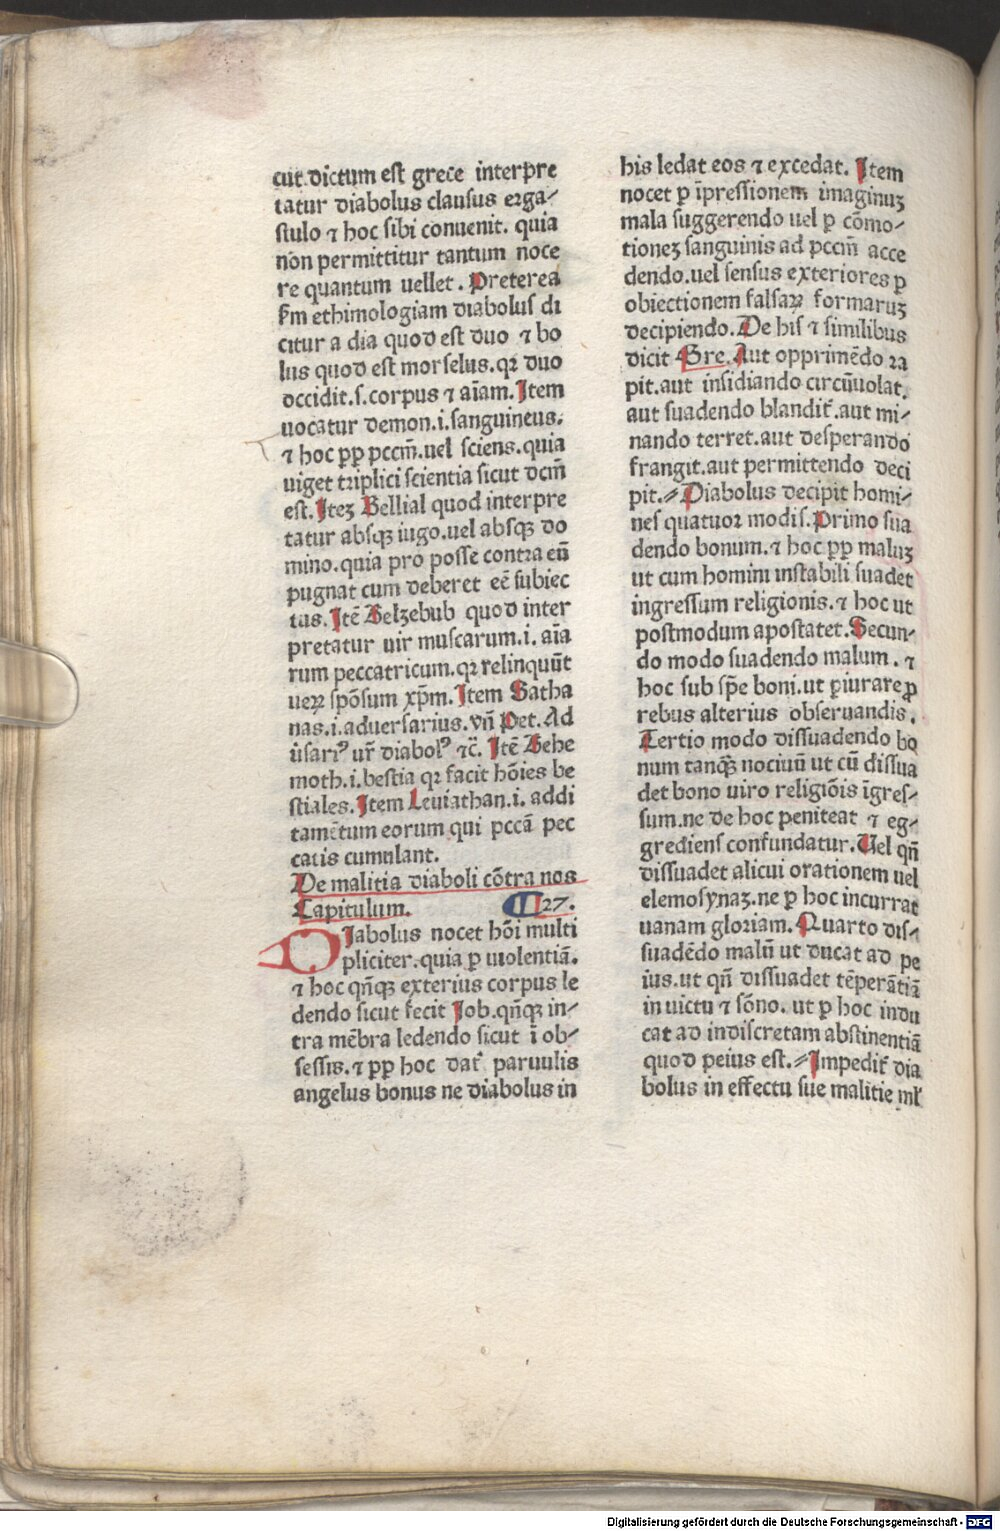 cut dictum est grece interpre
tatur diabolus clausus erga⸗
stulo ⁊ hoc sibi conuenit. quia
non permittitur tantum noce
re quantum uellet. Preterea
ẜm ethimologiam diabolus di
citur a dia quod est duo ⁊ bo
lus quod est morselus. qꝛ duo
occidit. s. corpus ⁊ aĩam. Item
uocatur demon. i. sanguineus.
⁊ hoc ꝓp pccm̃. uel sciens. quia
uiget triplici scientia sicut dcm̃
est. Iteꝫ Bellial quod interpre
tatur absqꝫ iugo. uel absqꝫ do
mino. quia pro posse contra eũ
pugnat cum deberet eẽ subiec
tus. Itẽ Belzebub quod inter
pretatur uir muscarum. i. aĩa
rum peccatricum. qꝛ relinquũt
ueꝝ spõsum xp̃m. Item Satha
nas. i. aduersarius. vñ Pet. Ad
ũsariꝰ ur̃ diabolꝰ ⁊c̃. Itẽ Behe
moth. i. bestia qꝛ facit hõies be
stiales. Item Leuiathan. i. addi
tamẽtum eorum qui pccã pec
catis cumulant.
De malitia diaboli cõtra nos
Capitulum. 27.
DIabolus nocet hõi multi
pliciter. quia ꝑ uiolentiã.
⁊ hoc qñqꝫ exterius corpus le
dendo sicut fecit Job. qñqꝫ in⸗
tra mẽbra ledendo sicut ĩ ob⸗
sessis. ⁊ ꝓp hoc dat̃ paruulis
angelus bonus ne diabolus in
his ledat eos ⁊ excedat. Item
nocet ꝑ ĩpressionem imaginuꝫ
mala suggerendo uel ꝑ cõmo⸗
tioneꝫ sanguinis ad pccm̃ acce
dendo. uel sensus exteriores ꝑ
obiectionem falsaꝝ formaruꝫ
decipiendo. De his ⁊ similibus
dicit Gre. Aut opprimẽdo ra
pit. aut insidiando circũuolat.
aut suadendo blandit̃. aut mi⸗
nando terret. aut desperando
frangit. aut permittendo deci
pit.⸗ Diabolus decipit homi⸗
nes quatuor modis. Primo sua
dendo bonum. ⁊ hoc ꝓp maluꝫ
ut cum homini instabili suadet
ingressum religionis. ⁊ hoc ut
postmodum apostatet. Secun⸗
do modo suadendo malum. ⁊
hoc sub sp̃e boni. ut ꝑiurare ꝓ
rebus alterius obseruandis.
Tertio modo dissuadendo bo
num tanqꝫ nociuũ ut cũ dissua
det bono uiro religiõis ĩgres⸗
sum. ne de hoc peniteat ⁊ eg⸗
grediens confundatur. Uel qñ
dissuadet alicui orationem uel
elemosynaꝫ. ne ꝑ hoc incurrat
uanam gloriam. Quarto dis⸗
suadẽdo malũ ut ducat ad pe
ius. ut qñ dissuadet tẽperãtiã
in uictu ⁊ sõno. ut ꝑ hoc indu
cat ad indiscretam abstinentiã
quod peius est.⸗ Impedit̃ dia
bolus in effectu sue malitie ml̃
Digitalisierung gefördert durch die Deutsche Forschungsgemeinschaft - DFG